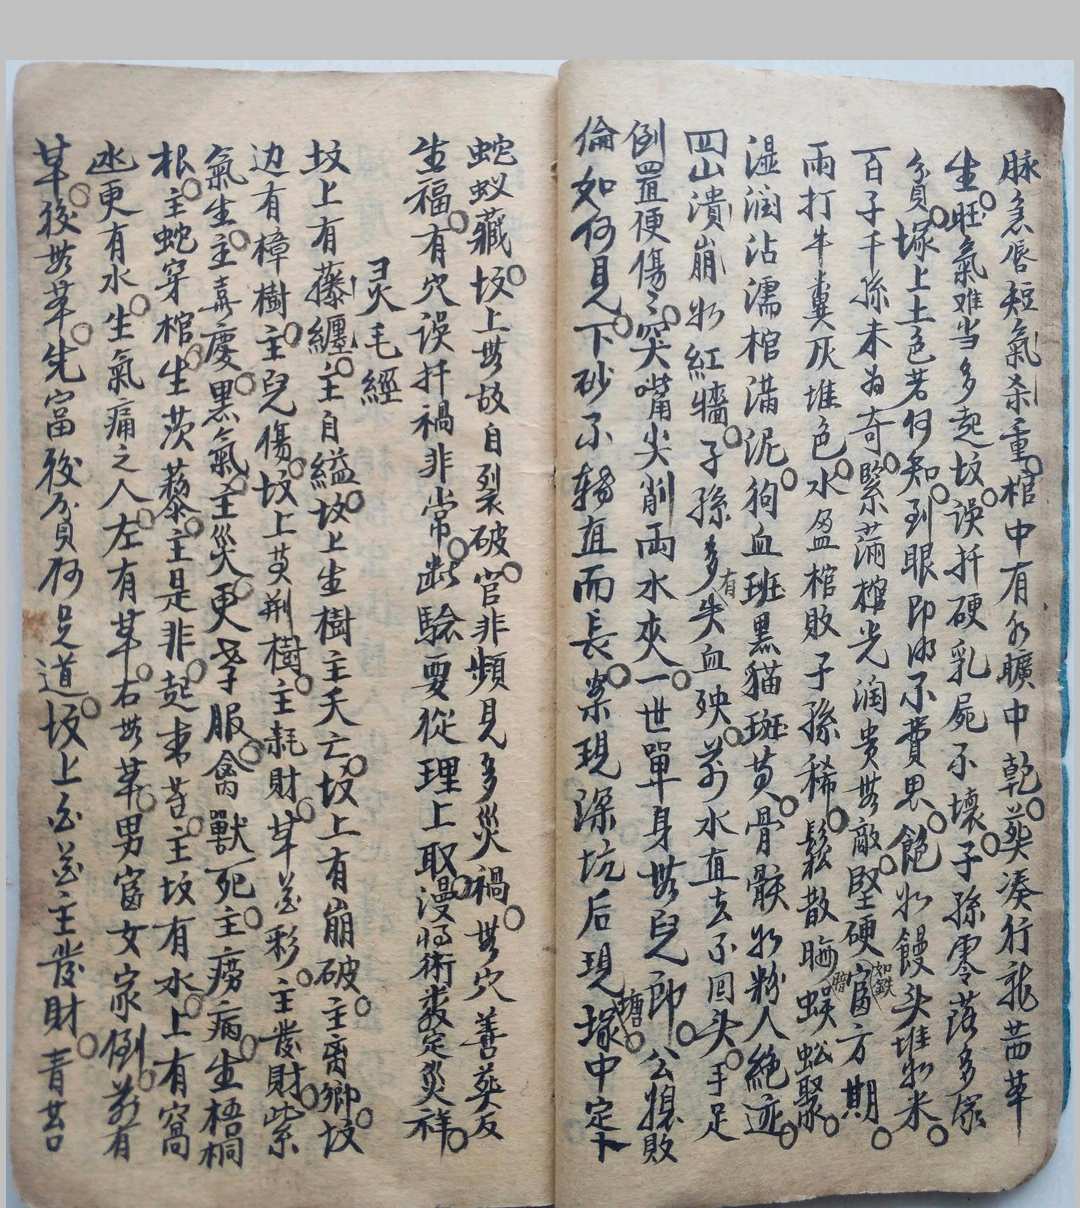 脉急唇短氣杀重棺中有水曠中乾葵凑行龍茜草
生旺氣难当多起坟误扦硬乳屍不壞子孫零落多家
貧塚上土色若何知到眼即明不費思飽如饅头堆如米
百子千孫未为奇緊滿棺光润贵無敵堅硬如鉄富方期
兩打牛糞灰堆色水盈棺敗子孫稀鬆散晦蜈蚣聚
湿润沾濡棺满泥狗血斑黑貓斑黄骨骸如粉人絶迹
四山潰崩如紅牆子孫多有失血殃前水直去不回头手足
倒置便傷〻突嘴尖削兩水夾一世單身無兒郎公媳敗
倫如何見下砂不轉直而長案現深坑后現塘塚中定卜
蛇蚁藏坟上無故自裂破官非頻見多災禍無穴善葵反
生福有穴误扦禍非常断驗要從理上取漫将術数定災祥
灵毛經
坟上有藤纏主自縊坟上生樹主夭亡坟上有崩破主离鄉坟
边有樟樹主兒傷坟上英荆樹主耗財草花彩主發財紫
氣生主喜慶黑氣主災更孝服禽獸死主痨病生梧桐
根主蛇穿棺生茨藜主是非起東苦主坟有水上有窩
更有水生氣痛之人左有草右無草男富女家倒前有
草後無草先富後貧何足道坟上白花主發財青苔